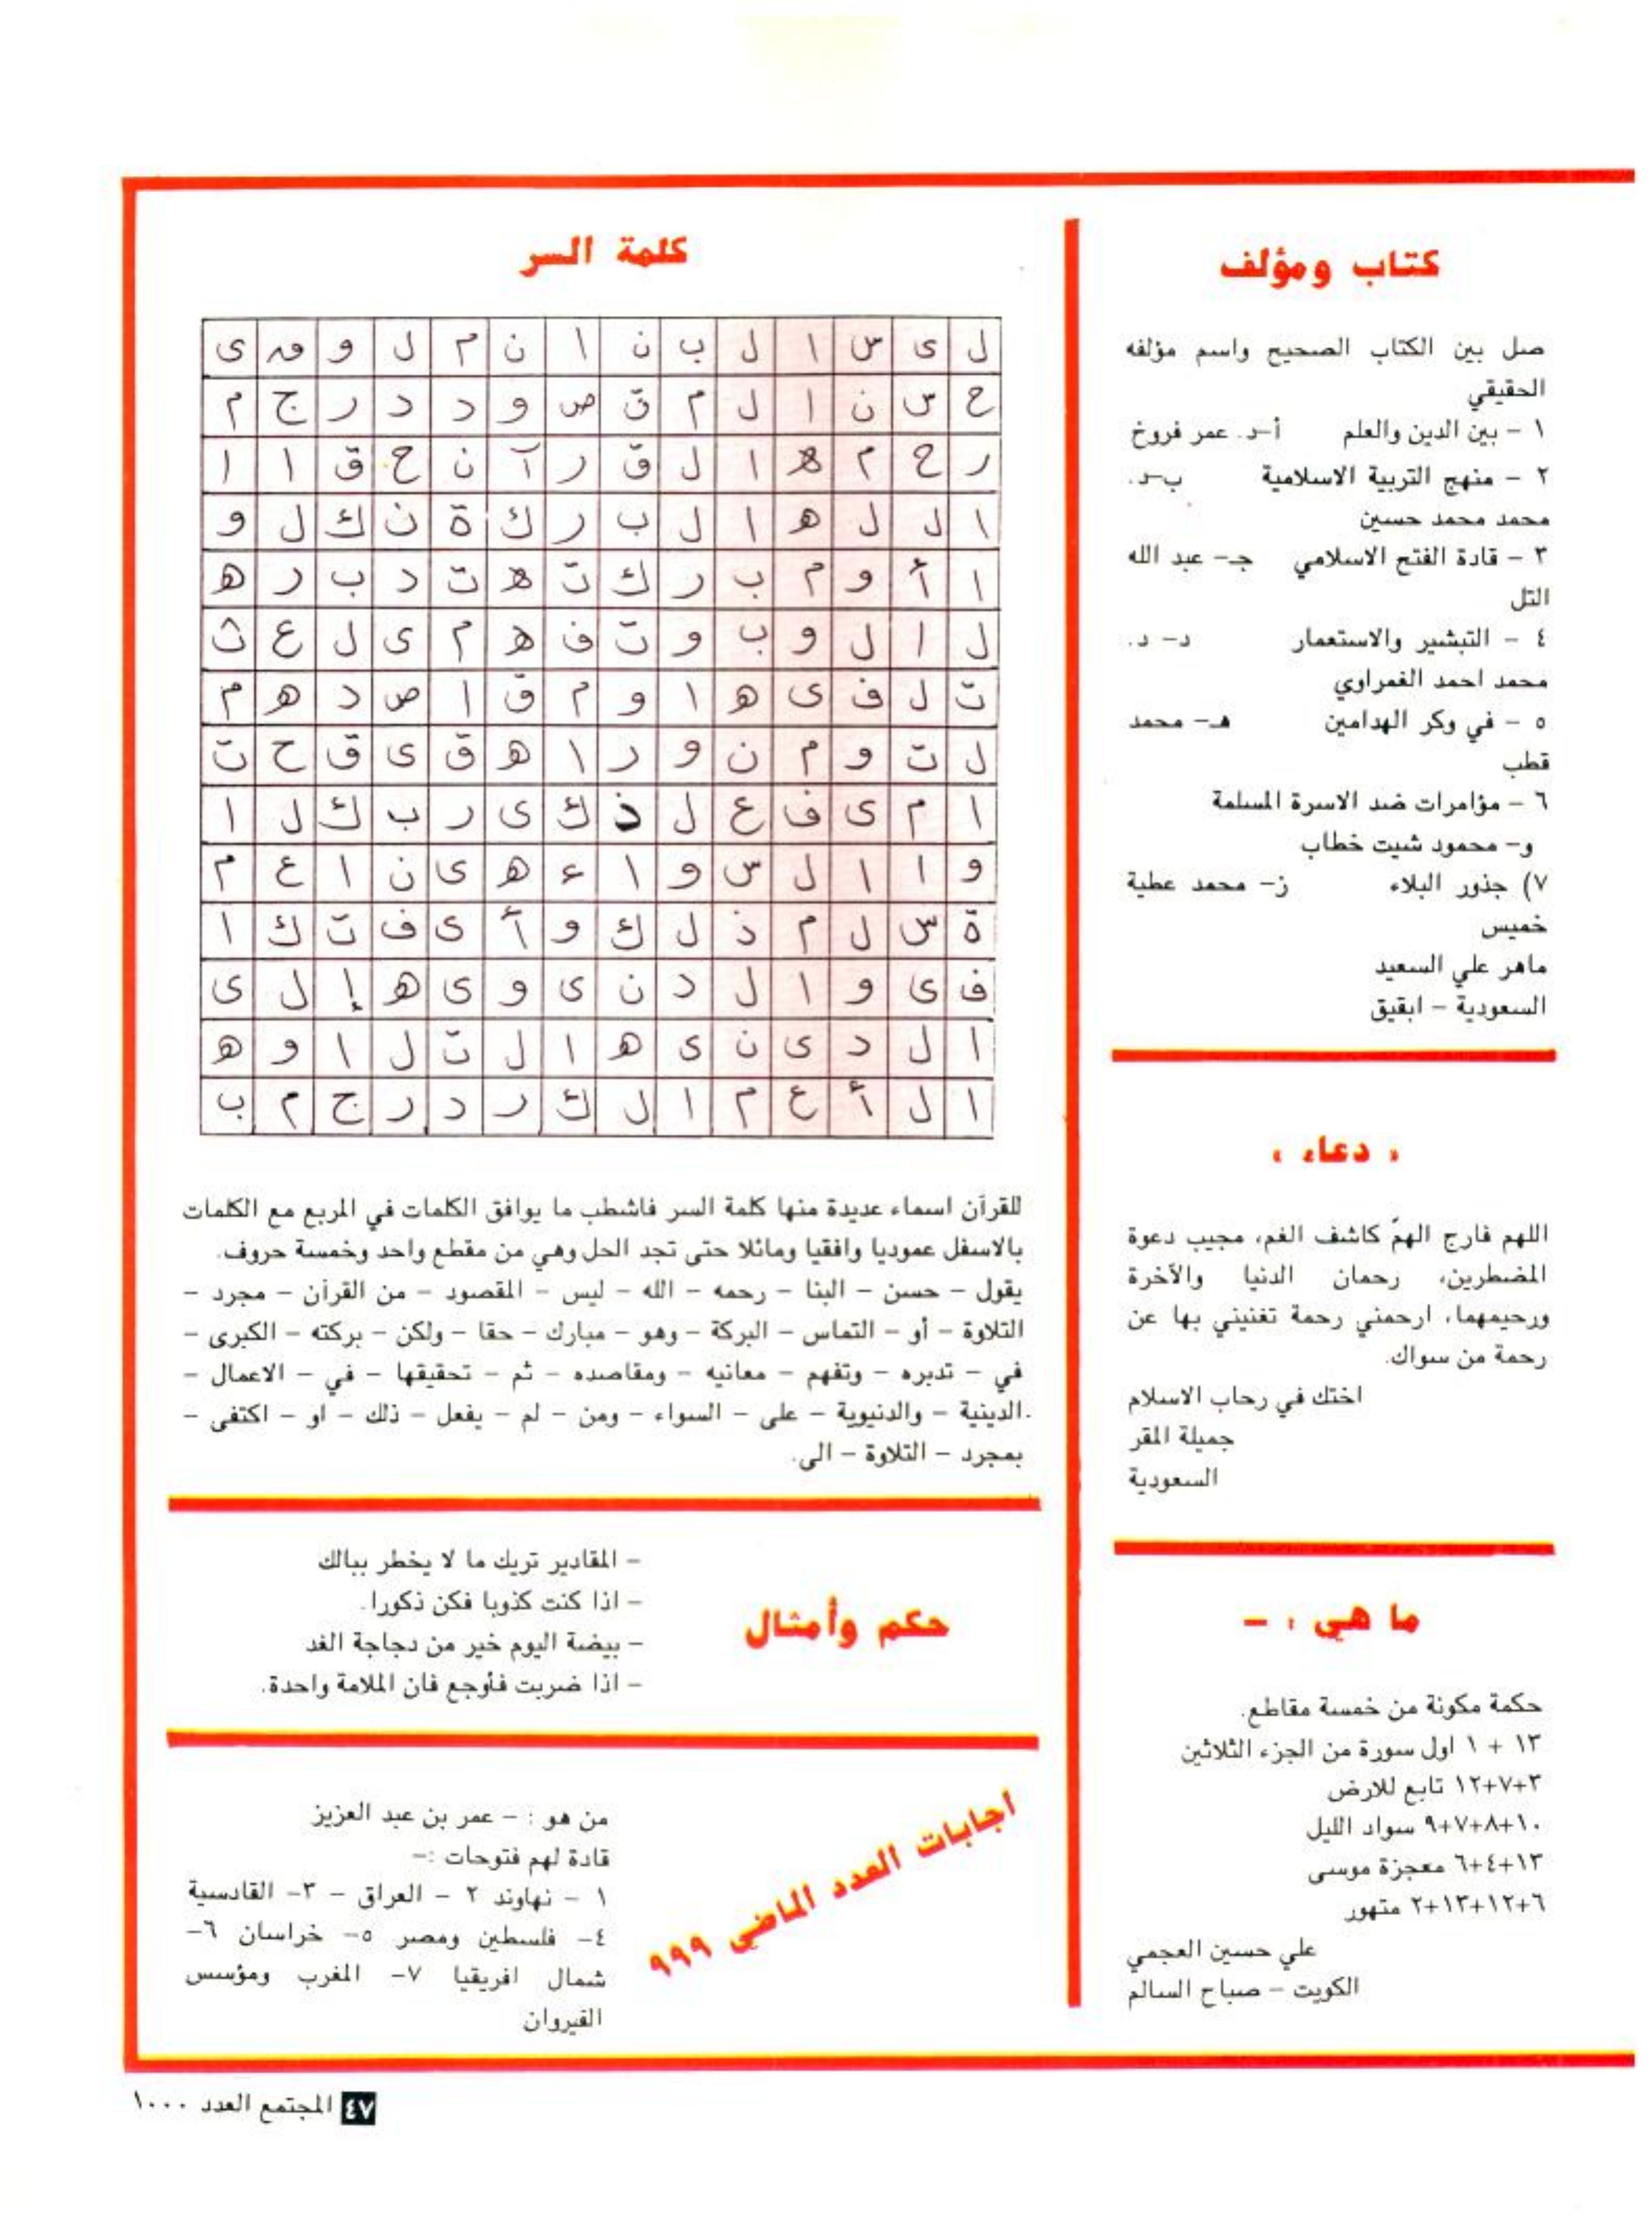 كتاب ومؤلف
صل بين الكتاب الصحيح واسم مؤلفه
الحقيقي
١ - بين الدين والعلم أ-د. عمر فروخ
٢ - منهج التربية الاسلامية ب-د.
محمد محمد حسين
٣ - قادة الفتح الاسلامي جـ- عبد الله
التل
٤ - التبشير والاستعمار د- د.
محمد احمد الغمراوي
٥ - في وكر الهدامين هـ- محمد
قطب
٦ - مؤامرات ضد الاسرة المسلمة
و- محمود شيت خطاب
٧) جذور البلاء ز- محمد عطية
خميس
ماهر علي السعيد
السعودية - ابقيق
« دعاء »
اللهم فارج الهمّ كاشف الغم، مجيب دعوة
المضطرين، رحمان الدنيا والآخرة
ورحيمهما، ارحمني رحمة تغنيني بها عن
رحمة من سواك.
اختك في رحاب الاسلام
جميلة المقر
السعودية
ما هي : -
حكمة مكونة من خمسة مقاطع.
١٣ + ١ اول سورة من الجزء الثلاثين
٣+٧+١٢ تابع للارض
١٠+٨+٧+٩ سواد الليل
١٣+٤+٦ معجزة موسى
٦+١٢+١٣+٢ متهور
علي حسين العجمي
الكويت - صباح السالم
كلمة السر
ل ى س ا ل ب ن ا ن م ل و هـ ى
ح س ن ا ل م ق ص و د د ر ج م
ر ح م ه ا ل ق ر آ ن ح ق ا ا
ا ل ل ه ا ل ب ر ك ة ن ك ل و
ا أ و م ب ر ك ت ه ت د ب ر ه
ل ا ل و ب و ت ف ه م ى ل ع ث
ت ل ف ى ه ا و م ق ا ص د ه م
ل ت و م ن و ر ا ه ق ى ق ح ت
ا م ى ف ع ل ذ ك ى ر ب ك ل ا
و ا ا ل س و ا ء ه ى ن ا ع م
ة س ل م ذ ل ك و أ ى ف ت ك ا
ف ى و ا ل د ن ى و ى ه إ ل ى
ا ل د ى ن ى ه ا ل ت ل ا و ه
ا ل أ ع م ا ل ك ر د ر ج م ب
للقرآن اسماء عديدة منها كلمة السر فاشطب ما يوافق الكلمات في المربع مع الكلمات
بالاسفل عموديا وافقيا ومائلا حتى تجد الحل وهي من مقطع واحد وخمسة حروف.
يقول - حسن - البنا - رحمه - الله - ليس - المقصود - من القرآن - مجرد -
التلاوة - أو - التماس - البركة - وهو - مبارك - حقا - ولكن - بركته - الكبرى -
في - تدبره - وتفهم - معانيه - ومقاصده - ثم - تحقيقها - في - الاعمال -
الدينية - والدنيوية - على - السواء - ومن - لم - يفعل - ذلك - او - اكتفى -
بمجرد - التلاوة - الى.
حكم وأمثال
- المقادير تريك ما لا يخطر ببالك
- اذا كنت كذوبا فكن ذكورا.
- بيضة اليوم خير من دجاجة الغد
- اذا ضربت فأوجع فان الملامة واحدة.
اجابات العدد الماضى ٩٩٩
من هو : - عمر بن عبد العزيز
قادة لهم فتوحات :-
١ - نهاوند ٢ - العراق - ٣- القادسية
٤- فلسطين ومصر ٥- خراسان ٦-
شمال افريقيا ٧- المغرب ومؤسس
القيروان
٤٧ المجتمع العدد ١٠٠٠